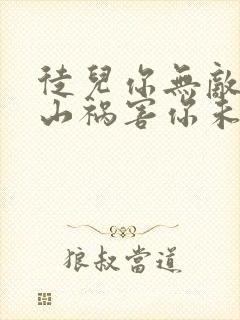 徒兒你無敵
山禍害你未
狼叔當道